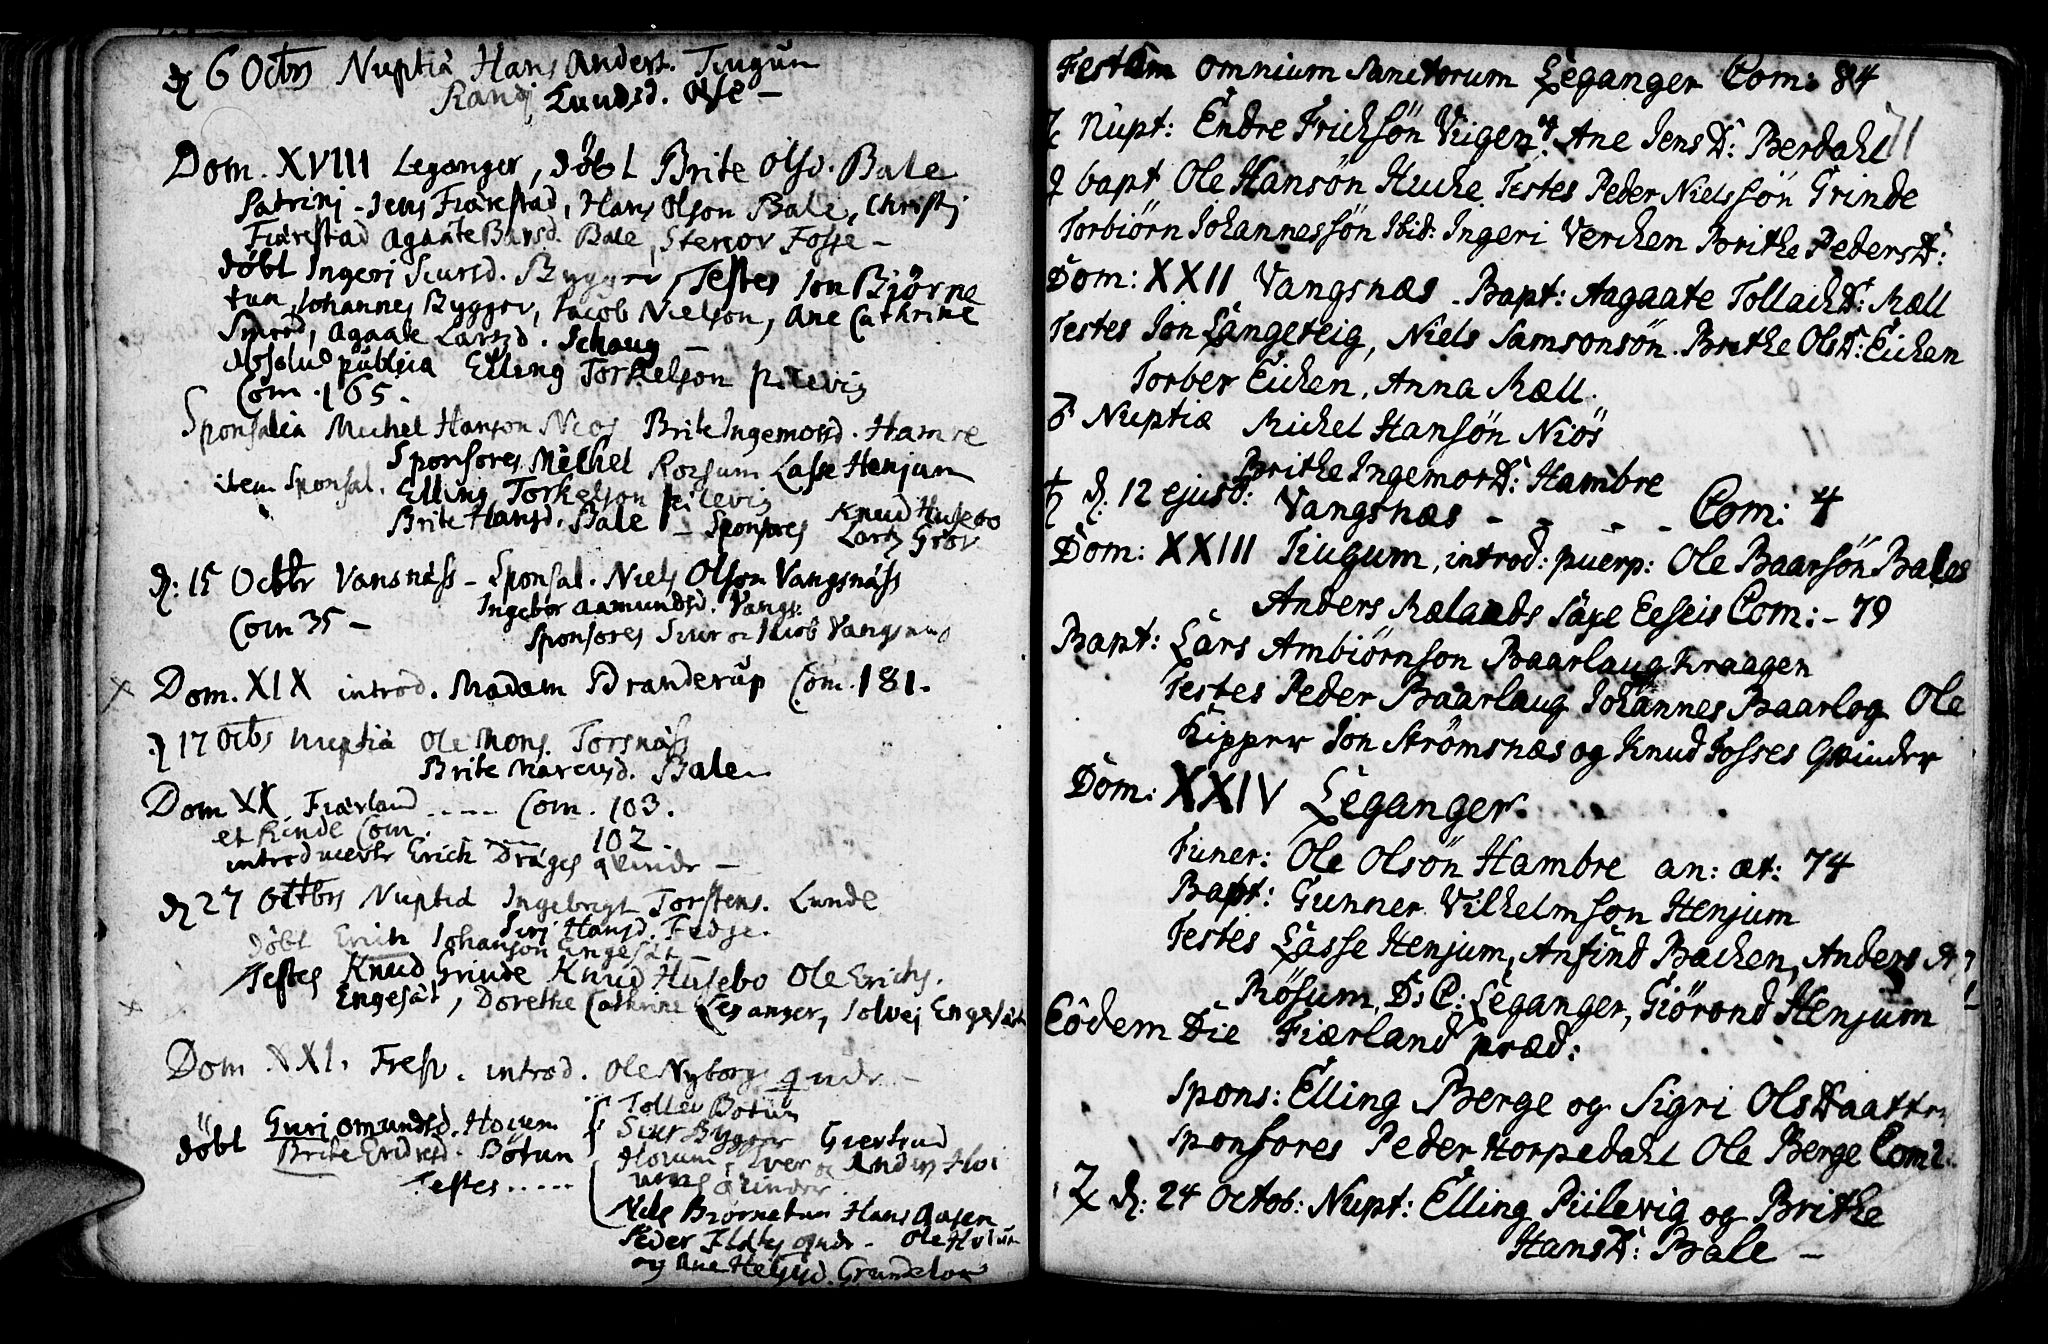 d 6 Octbs Nuptiæ Hans Anders. Tiugum
Randj Lundsd. Ose –
Dom. XVIII Leganger, døbt Brite Olsd. Bale
Patrinj – Jens Fiærestad, Hans Olson Bale, Christj
Fiærestad Agaate Barsd. Bale, Stenor Fosse –
døbt Ingerj Siursd. Bygger Testes Jon Biörne
tun, Johannes Bygger, Jacob Nielson, Ane Cathrine
Smord, Agaate Larsd. Schaug –
absolut publica Elling Torkelson pilevig
Com. 165.
Sponsalia Michel Hanson Nios Brite Ingemorsd. Hamre
Sponsores Michel Rossum Lasse Henjum
item Sponsal. Elling Torkelson pilevig
Brite Hansd. Bale – Sponsores Knud Husebo
Lars Grov
d: 15 Octbr Vansnäss – Sponsal. Niels Olson Vangsnäss
Ingebor Aamundsd. Vangs:
Com 35 – Sponsores Siur oc Jacob Vangsnæs
Dom. XIX introd. Madam Branderup Com. 181.
d 17 Octbs Nuptiæ Ole Mons. Torsnäss
Brite Marcusd. Bale
Dom XX Fiærland ---- Com. 103.
et Rinde Com. 102
introducerte Erich Dräges qvinde –
d 27 Octbrs Nuptiæ Ingebregt Torstens. Lunde
Sirj Hansd. Fedje.
døbt Erich Johanson Engesät –
Testes Knud Grinde Knud Husebo Ole Erichs.
Engesät, Dorethe Cathrine Leganger, Solvej Engesät
Dom XXI. Fresv. introd. Ole Nyborgs qvinde –
Tollev Botun
döbt Guri Omundsd. Hovum Siur Bygger Giertrud
Brite Endresd. Bötun Hovum, Iver oc Anders Ho
Testes ..... qvinder.
Nels Biörnetun Hans Aasen
Peder qvinde – Ole
og Ane Helgesd. Grindelow
Festum omnium Sanctorum Leganger Com: 84
Nupt: Endre Frichsön Viigen & Ane Jens D: Berdahl
bapt Ole Hansön Huche Testes Peder Nielssön Grinde
Torbiörn Johannessön Ibid: Ingeri Verchen Brithe Peders D:
Dom: XXII Vangsnæs – Bapt: Aagaate Tollach D: Mæll
Testes Jon Längeteig, Niels Samsonsön. Brethe Ols D: Eichen
Torber Eichen, Anna Mæll.
♂ Nuptiæ Michel Hansön Niös
Brithe Ingemor D: Hambre
♄ d: 12 ejusd: Vangsnæs - - - - Com: 4
Dom: XXIII Tiugum, introd: puerp: Ole Baarsön Bales
Anders Mælands Saxe Eeseis Com: - 79
Bapt: Lars Ambiörnson Baarlaug Kraagen
Testes Peder Baarlaug Johannes Baarlog Ole
Kipper Jon Strömsnæs og Knud Fosses Qvinder
Dom: XXIV Leganger.
Funer: Ole Olsön Hambre an: æt: 74
Bapt: Gunner Vilhelmson Henjum
Testes Lasse Henjum, Anfind Bachen, Anders
Rösum, D: C: Leganger, Giörond Henjum
Eôdem Die Fiærland præd:
Spons: Elling Berge og Sigri Ols Daatter
Sponsores Peder Horpedahl Ole Berge Com
♃ d: 24 Octob: Nupt: Elling Piilevig og Brithe
Hans D: Bale –